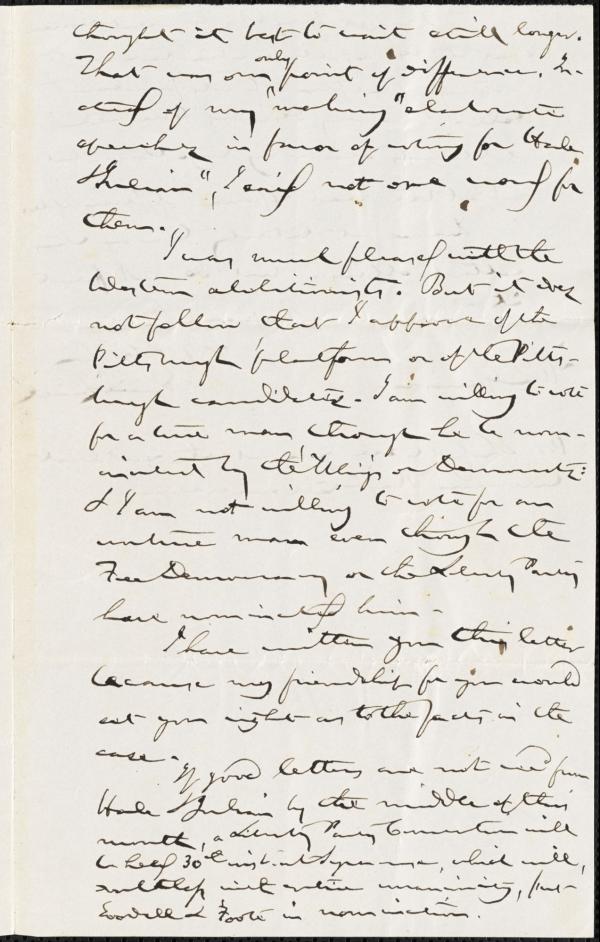 thought it best to wait still longer.
That was our only point of difference. In-
stead of my "making" elaborate
speeches in favor of voting for Hale
& Julian", I said not one word for
them.
I was much pleased with the
Western abolitionists. But it does
not follow that I approve of the
Pittsburgh platform or of the Pitts-
burgh candidates. I am willing to vote
for a true man though he be nom-
inated by the Whigs or Democrats:
& I am not willing to vote for an
untrue man even though the
Free Democracy or the Liberty Party
have nominated him.
I have written you this letter
because my friendship for you would
set you right as to the facts in the
case.
If good letters are not rec'd from
Hale & Julian by the middle of this
month, a Liberty Party Convention will
be held 30th inst. at Syracuse, which will,
doubtless with entire unanimity, put
Goodell & Foote in nomination.